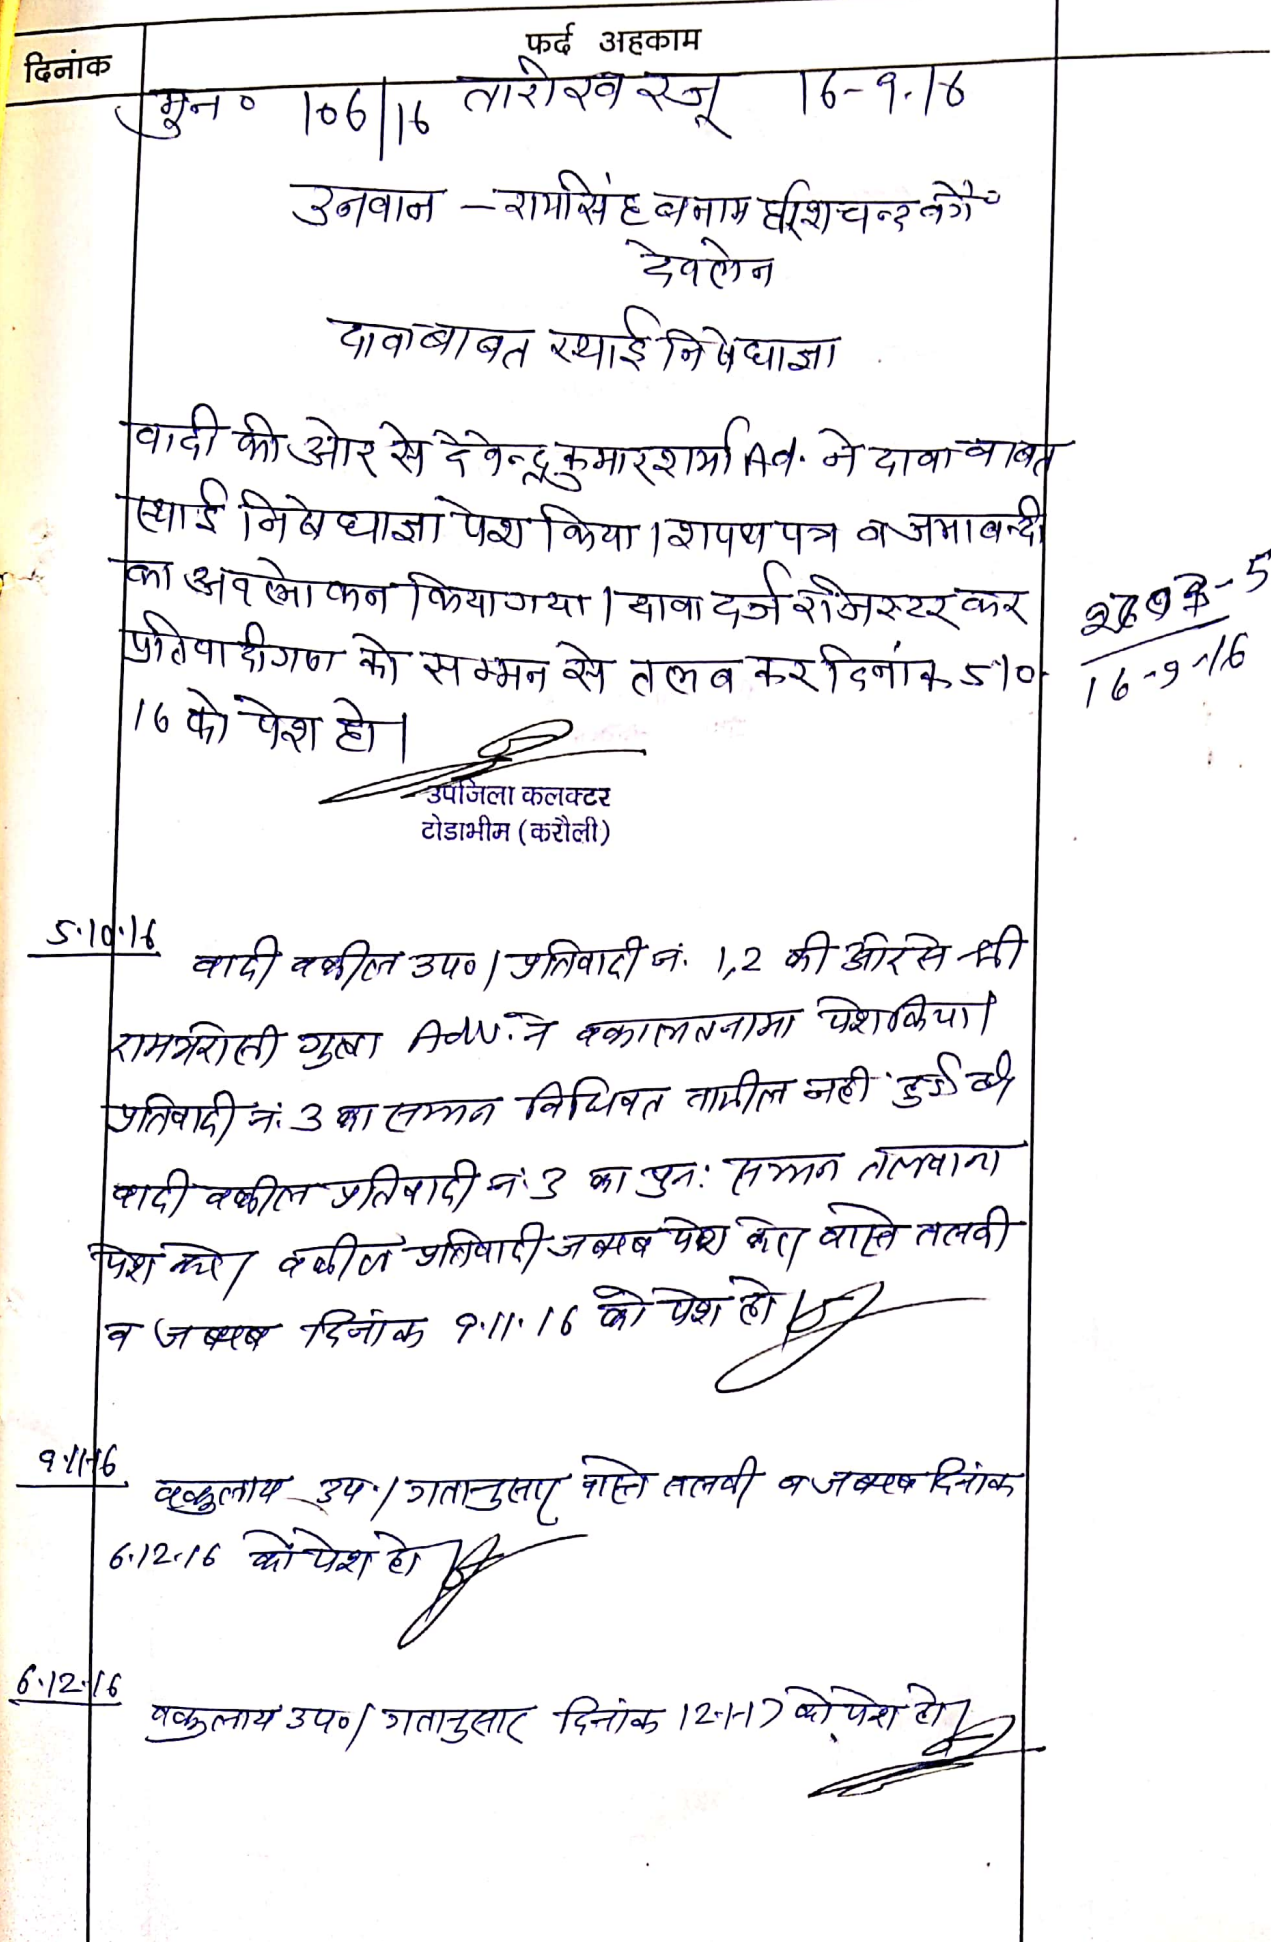 फर्द अहकाम
दिनांक
मु०न० 106/16 तारीख रजू 16-9-16
उनवान – रामसिंह बनाम हरिशचन्द वगै०
देवलेन
दावा बाबत स्थाई निषेधाज्ञा
वादी की ओर से देवेन्द्र कुमार शर्मा Ad. ने दावा बाबत
स्थाई निषेधाज्ञा पेश किया। शपथ पत्र व जमाबन्दी
का अवलोकन किया गया। दावा दर्ज रजिस्टर कर
प्रतिवादीगण को सम्मन से तलब कर दिनांक 5-10-
16 को पेश हो।
16-9-16
उपजिला कलक्टर
टोडाभीम (करौली)
5.10.16
वादी वकील उप०। प्रतिवादी नं. 1,2 की ओर से श्री
गुप्ता Adv. ने वकालतनामा पेश किया।
प्रतिवादी नं. 3 का सम्मन विधिवत तामील नही हुई
वादी वकील प्रतिवादी नं. 3 का पुन: सम्मन तलवाना
पेश करे। वकील प्रतिवादी जबाब पेश करे। वास्ते तलवी
व जबाब दिनांक 9.11.16 को पेश हो।
9.11.16
वकुलाय उप.। गतानुसार वास्ते तलवी व जबाब दिनांक
6.12.16 को पेश हो।
6.12.16
वकुलाय उप०। गतानुसार दिनांक 12-1-17 को पेश हो।